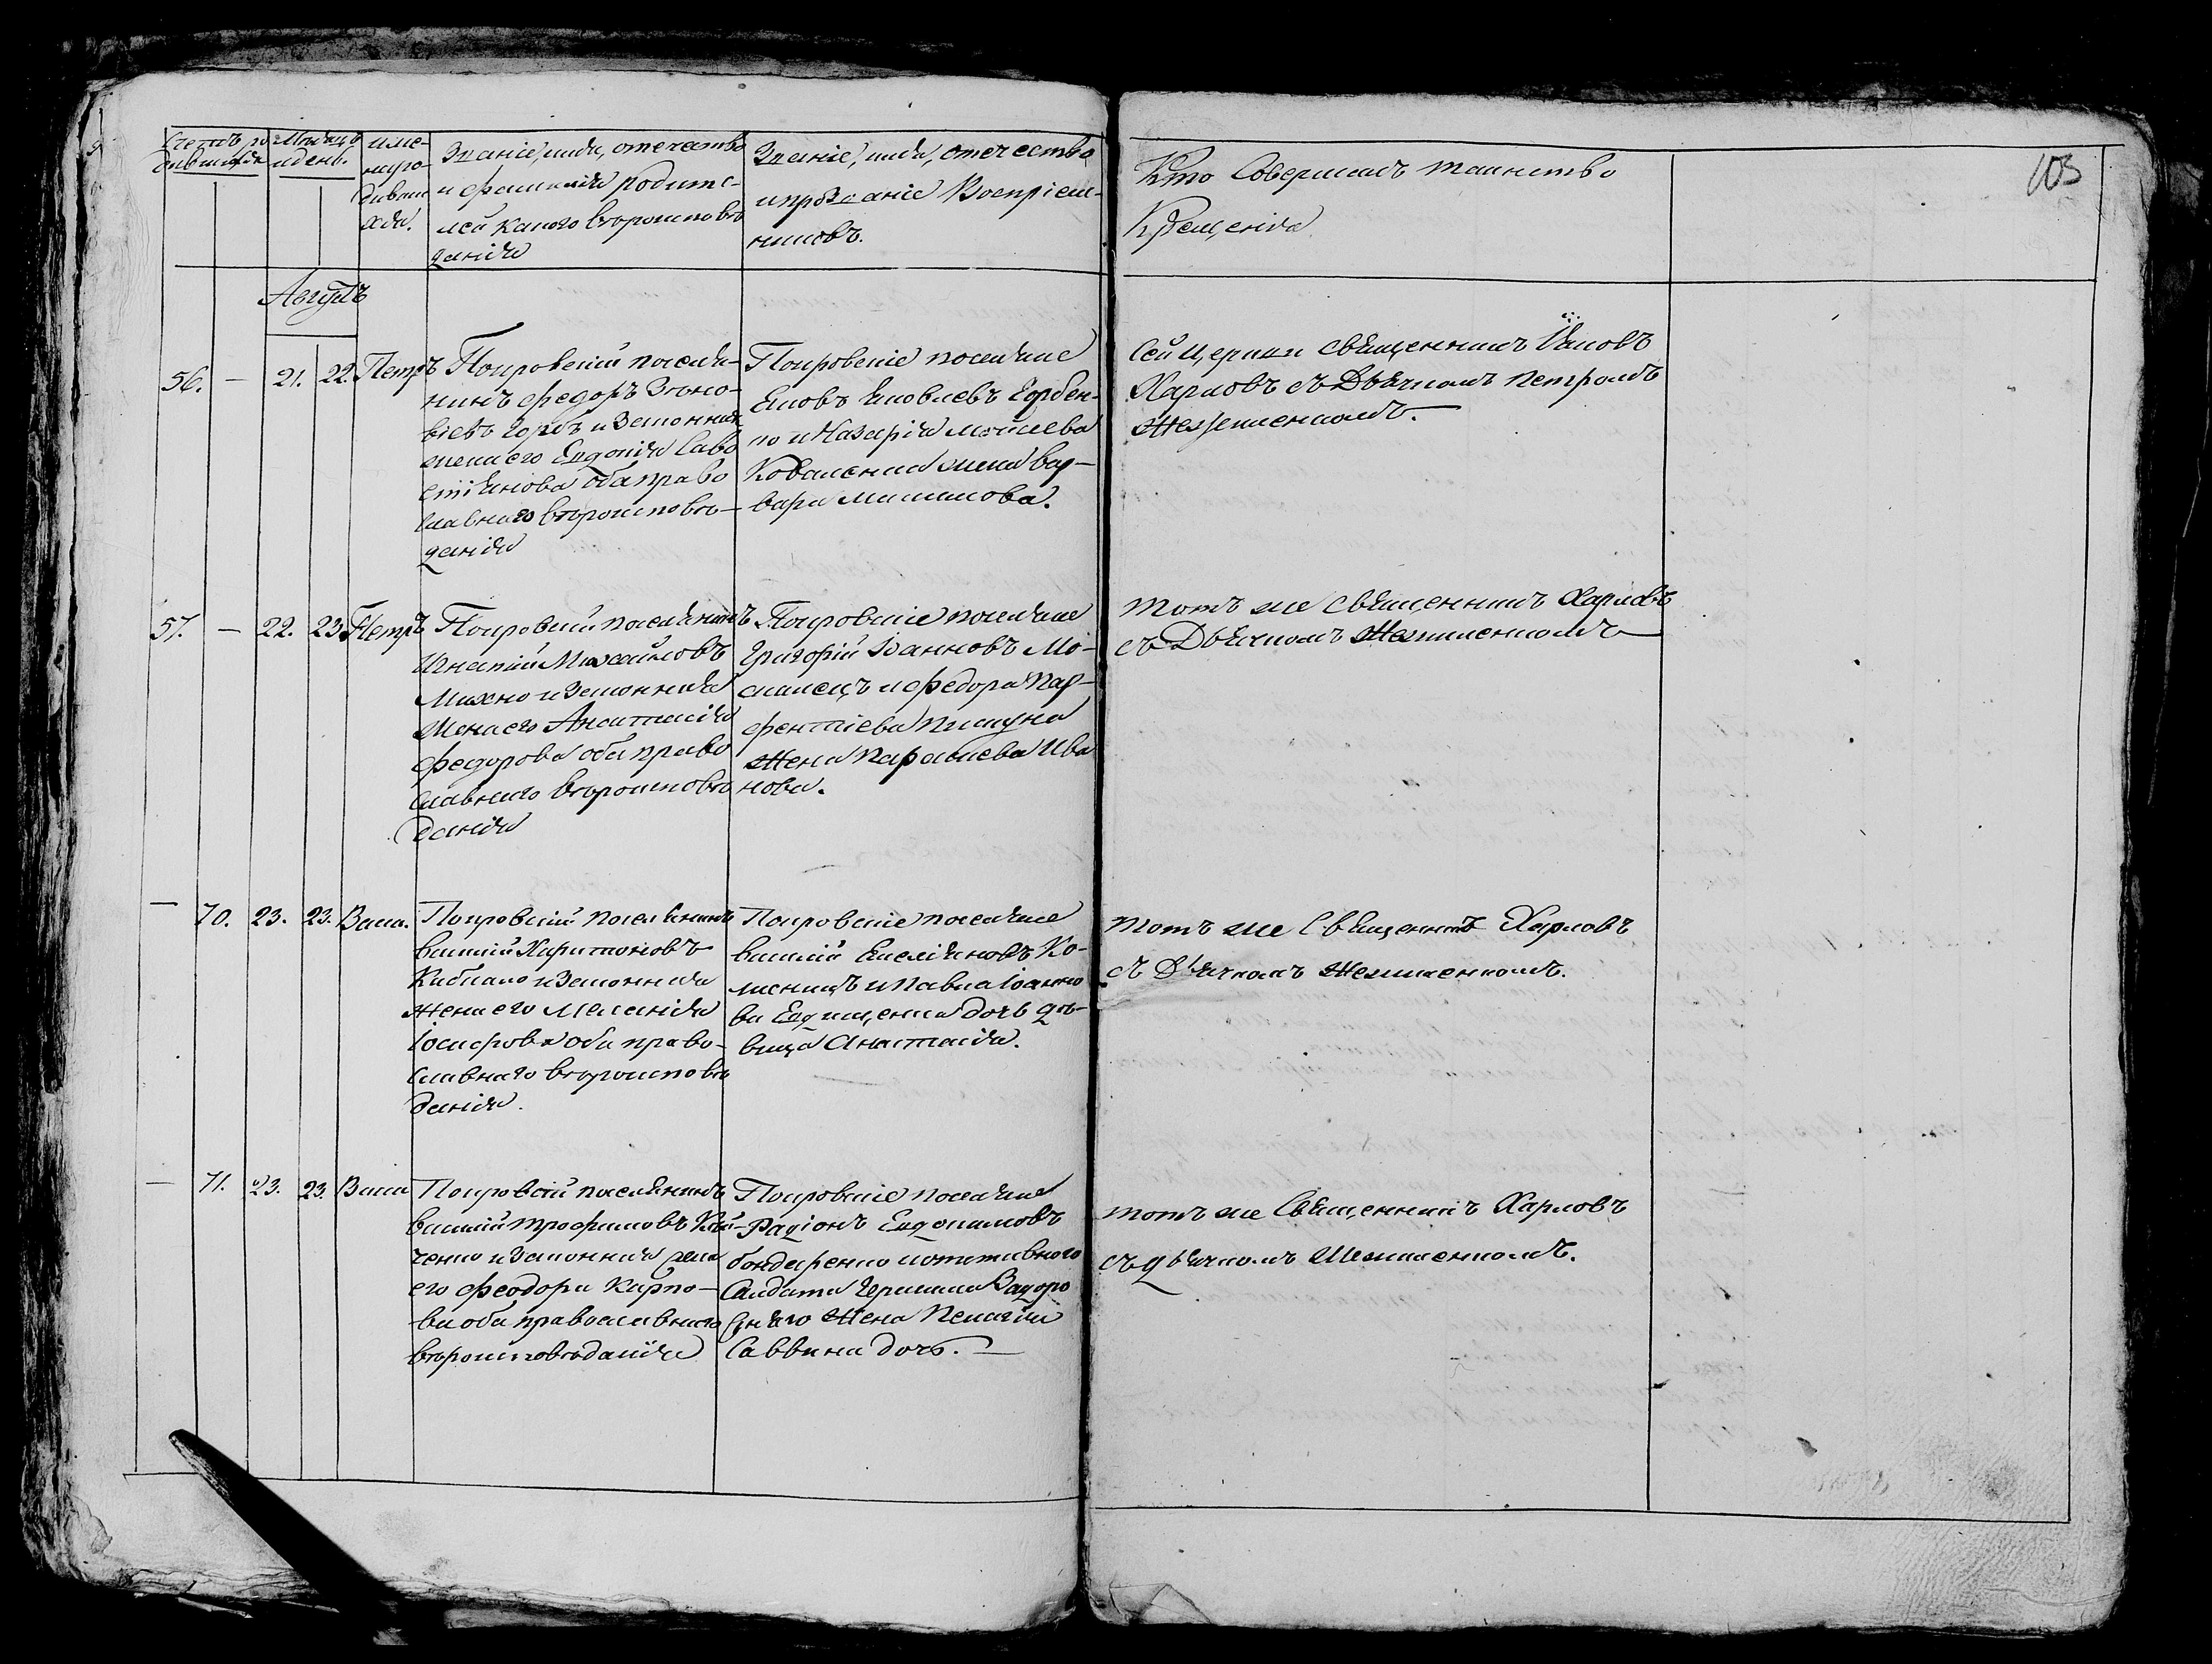 103
Счетъ ро-
дившихся
Месяцъ
и день.
име-
на ро-
дивши
хся.
Званіе, имя, отечество
и фамилія родите-
лей какого вѣроисповѣ
данія
Званіе, имя, отчество
и прозваніе Воспріем-
никовъ.
Кто Совершалъ таинство
Крещенія
Августъ
56. — 21. 22. Петръ
Покровскій поселя-
нинъ Федоръ
вьевъ Горбъ и законная
жена его Евдокія Сава
стіянова оба право
славнаго вѣроисповѣ-
данія
Покровскіе поселяне
Яковъ Яковлевъ Горбен-
ко и Назарія Мойсеева
Коваленка жена Вар-
вара Климова.
Сей церкви священникъ Іаковъ
Харловъ съ Дьячкомъ Петромъ
57. — 22. 23. Петръ
Покровскій поселянинъ
Игнатій Михайловъ
Михно и законная
Жена его Анастасія
Федорова оба право
славнаго вѣроисповѣ
данія
Покровскіе поселяне
Григорій Іоанновъ Мо-
и Федора Пар-
фентіева
Жена Параскева Ива
нова.
тотъ же священникъ Харловъ
съ Дьячкомъ
— 70. 23. 23. Васи.
Покровскій поселянинъ
Василій Харитоновъ
и законная
жена его Меланія
Іосифова оба право-
славнаго вѣроисповѣ
данія.
Покровскіе поселяне
Василій Емеліяновъ Ко-
и Павла Іоанно
ва дочь дѣ-
вица Анастасія.
тотъ же Священникъ Харловъ
съ Дьячкомъ
— 71. 23. 23. Васи
Покровскій поселянинъ
Василій Трофимовъ
ченко и законная жена
его Феодора Карпо-
ва оба православнаго
вѣроисповѣданія
Покровскіе поселяне
Радіонъ Евдокимовъ
Бондаренко и отставного
Салдата Задоро
жняго Жена Пелагія
Саввина дочь.
тотъ же Священникъ Харловъ
съ дьячкомъ